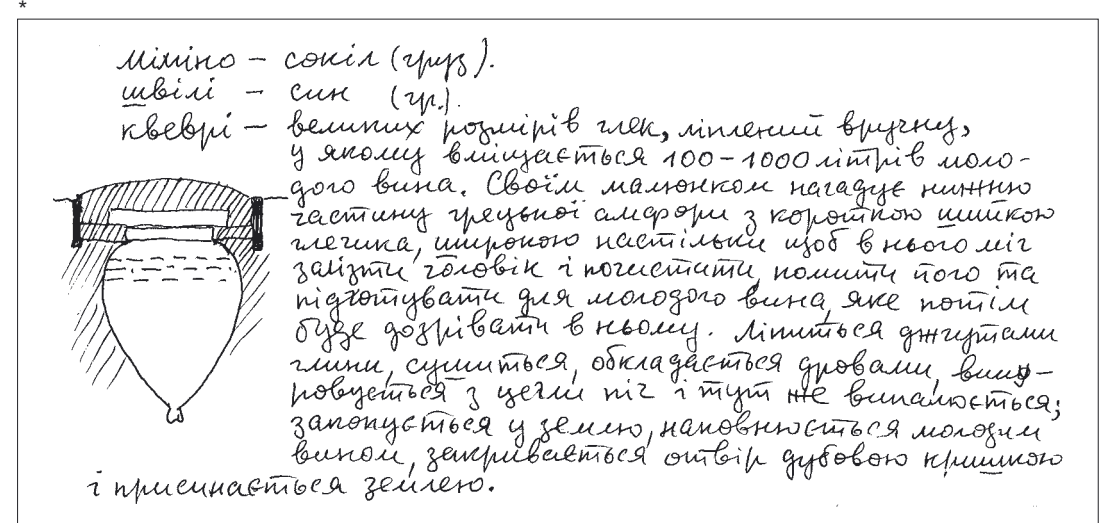 *
міміно – сокіл (груз).
швілі – син (гр.).
квеврі – великих розмірів глек, ліплений вручну,
у якому вміщається 100–1000 літрів моло-
дого вина. Своїм малюнком нагадує нижню
частину грецької амфори з короткою шийкою
глечика, широкою настільки щоб в нього міг
залізти чоловік і почистити, помити його та
підготувати для молодого вина, яке потім
буде дозрівати в ньому. Ліпиться джгутами
глини, сушиться, обкладається дровами, виму-
ровується з цегли піч і тут же випалюється;
закопується у землю, наповнюється молодим
вином, закривається отвір дубовою кришкою
і присипається землею.